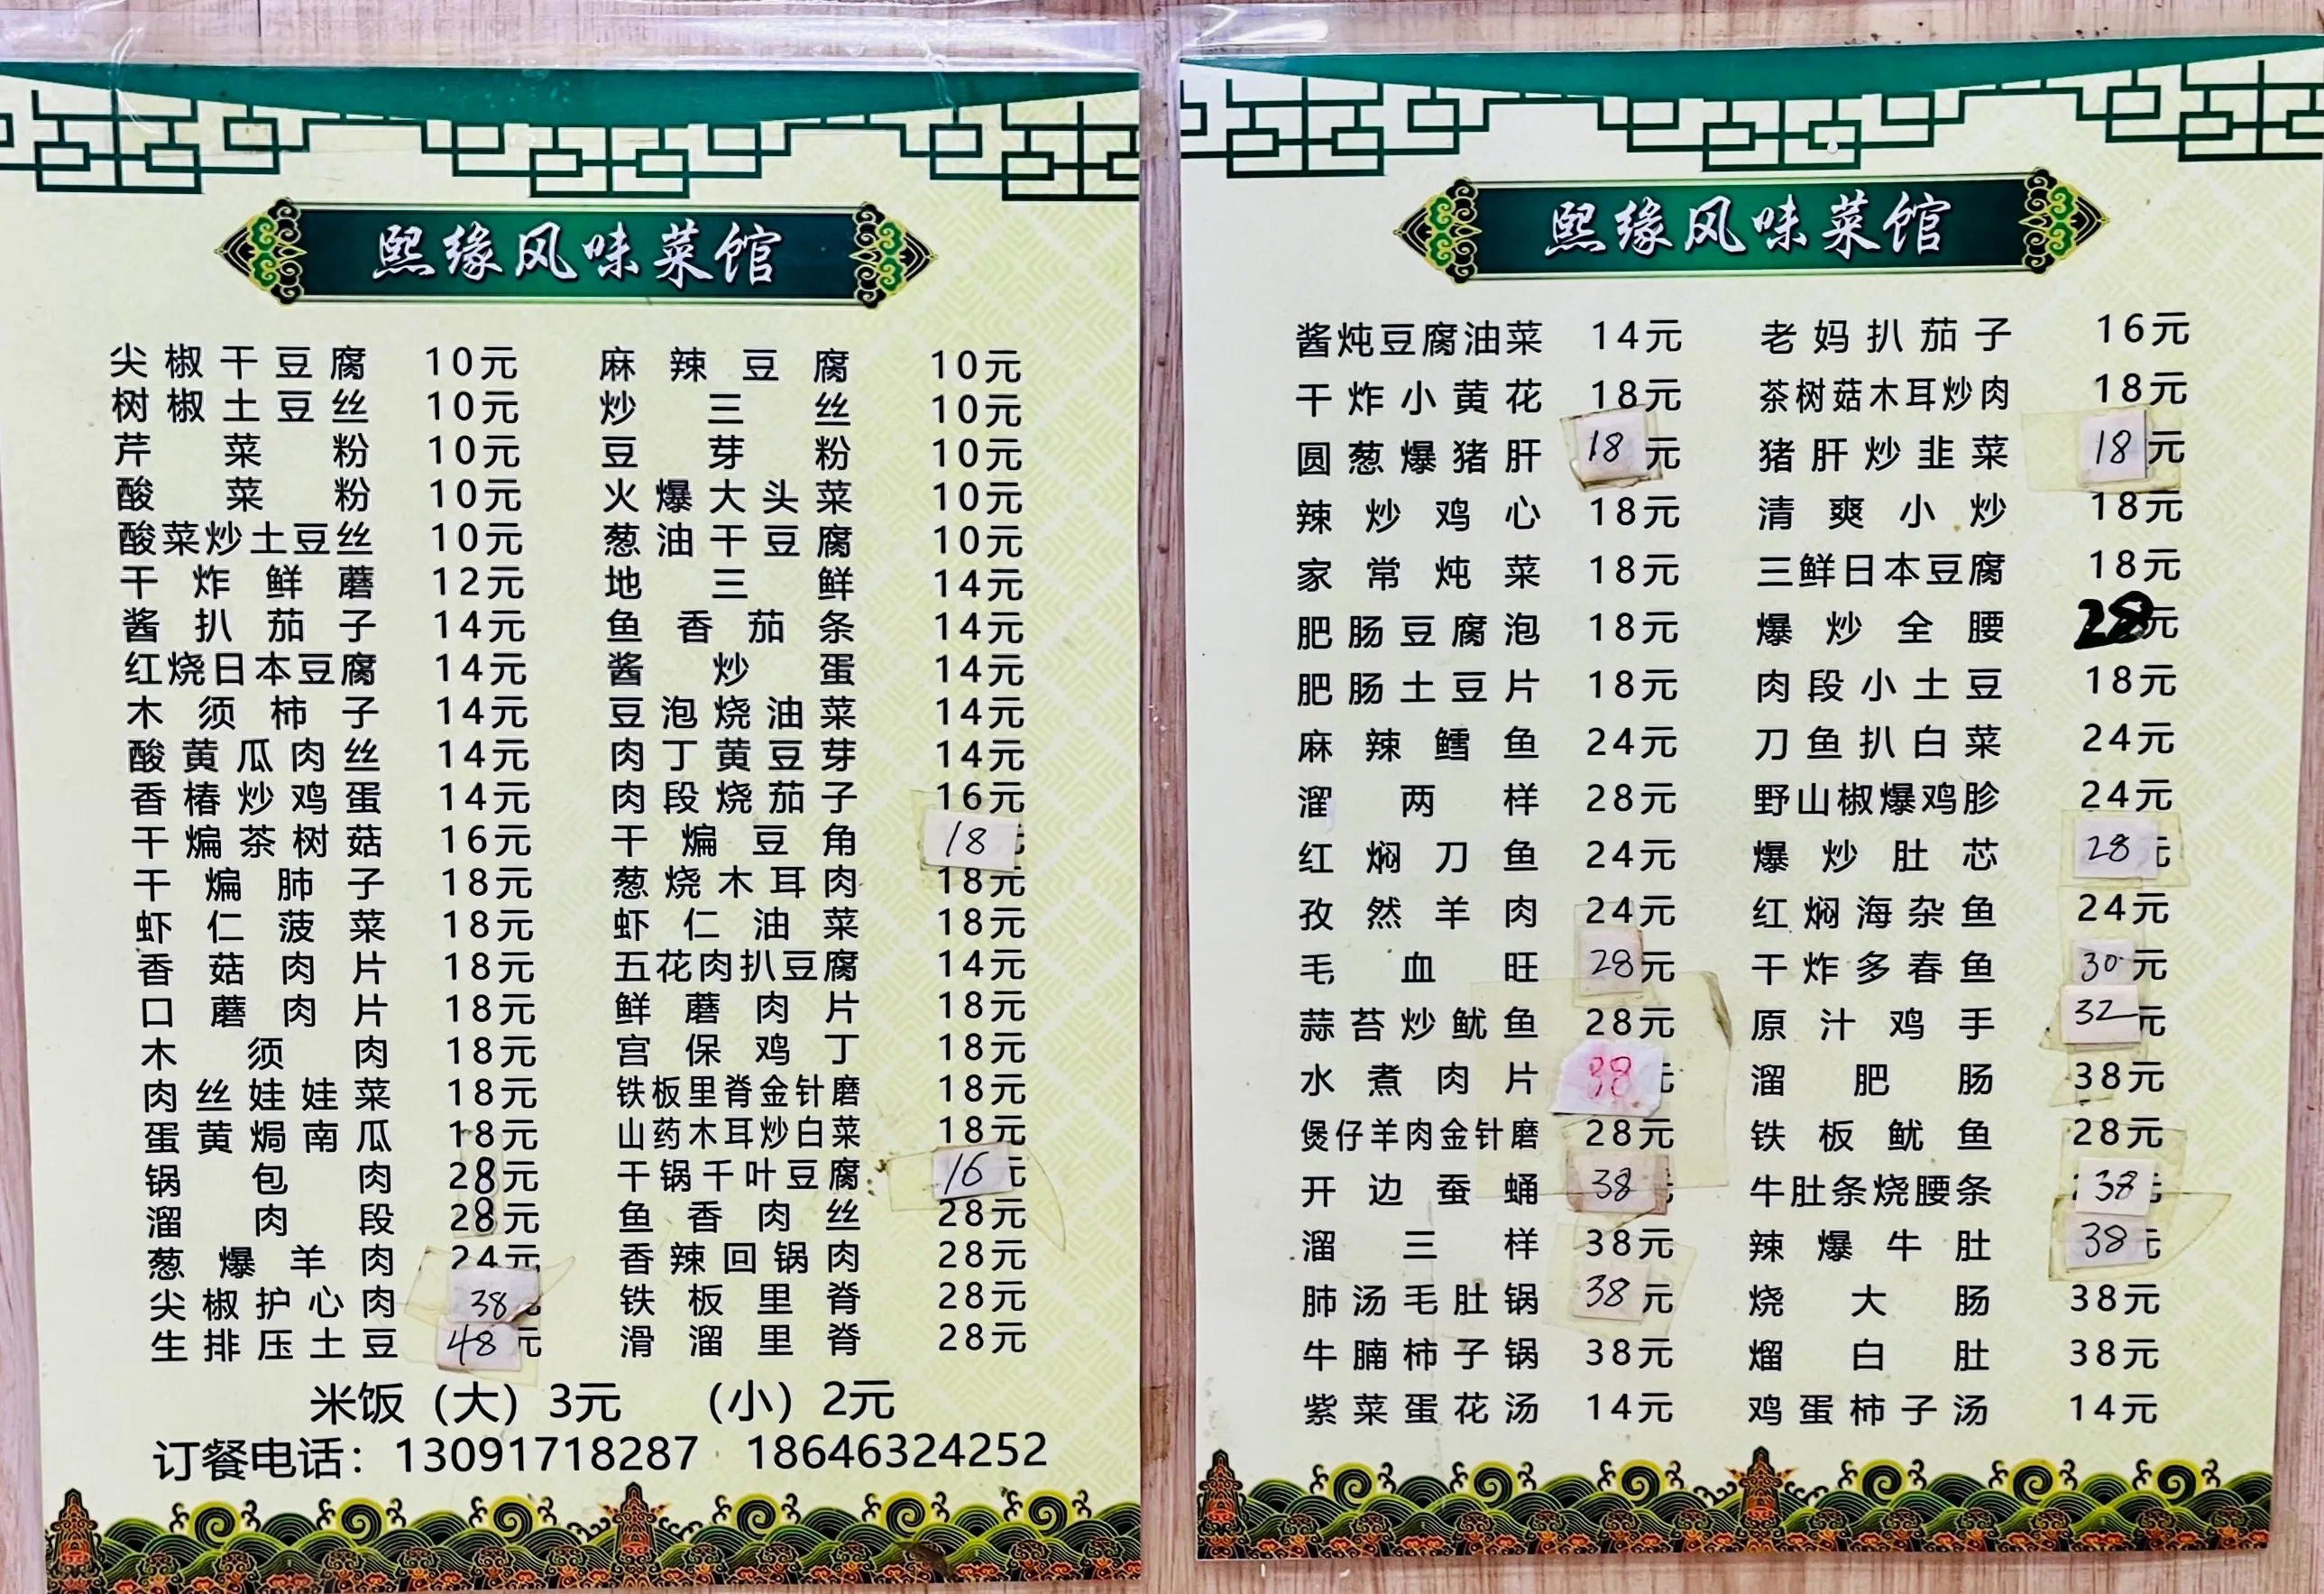 熙缘风味菜馆
尖椒干豆腐 10元 麻辣豆腐 10元
树椒土豆丝 10元 炒三丝 10元
芹菜粉 10元 豆芽粉 10元
酸菜粉 10元 火爆大头菜 10元
酸菜炒土豆丝 10元 葱油干豆腐 10元
干炸鲜蘑 12元 地三鲜 14元
酱扒茄子 14元 鱼香茄条 14元
红烧日本豆腐 14元 酱炒蛋 14元
木须柿子 14元 豆泡烧油菜 14元
酸黄瓜肉丝 14元 肉丁黄豆芽 14元
香椿炒鸡蛋 14元 肉段烧茄子 16元
干煸茶树菇 16元 干煸豆角 18元
干煸肺子 18元 葱烧木耳肉 18元
虾仁菠菜 18元 虾仁油菜 18元
香菇肉片 18元 五花肉扒豆腐 14元
口蘑肉片 18元 鲜蘑肉片 18元
木须肉 18元 宫保鸡丁 18元
肉丝娃娃菜 18元 铁板里脊金针磨 18元
蛋黄焗南瓜 18元 山药木耳炒白菜 18元
锅包肉 28元 干锅千叶豆腐 16元
溜肉段 28元 鱼香肉丝 28元
葱爆羊肉 24元 香辣回锅肉 28元
尖椒护心肉 38元 铁板里脊 28元
生排压土豆 48元 滑溜里脊 28元
米饭（大）3元 （小）2元
订餐电话：13091718287 18646324252
熙缘风味菜馆
酱炖豆腐油菜 14元 老妈扒茄子 16元
干炸小黄花 18元 茶树菇木耳炒肉 18元
圆葱爆猪肝 18元 猪肝炒韭菜 18元
辣炒鸡心 18元 清爽小炒 18元
家常炖菜 18元 三鲜日本豆腐 18元
肥肠豆腐泡 18元 爆炒全腰 28元
肥肠土豆片 18元 肉段小土豆 18元
麻辣鳕鱼 24元 刀鱼扒白菜 24元
溜两样 28元 野山椒爆鸡胗 24元
红焖刀鱼 24元 爆炒肚芯 28元
孜然羊肉 24元 红焖海杂鱼 24元
毛血旺 28元 干炸多春鱼 30元
蒜苔炒鱿鱼 28元 原汁鸡手 32元
水煮肉片 38元 溜肥肠 38元
煲仔羊肉金针磨 28元 铁板鱿鱼 28元
开边蚕蛹 38元 牛肚条烧腰条 38元
溜三样 38元 辣爆牛肚 38元
肺汤毛肚锅 38元 烧大肠 38元
牛腩柿子锅 38元 熘白肚 38元
紫菜蛋花汤 14元 鸡蛋柿子汤 14元